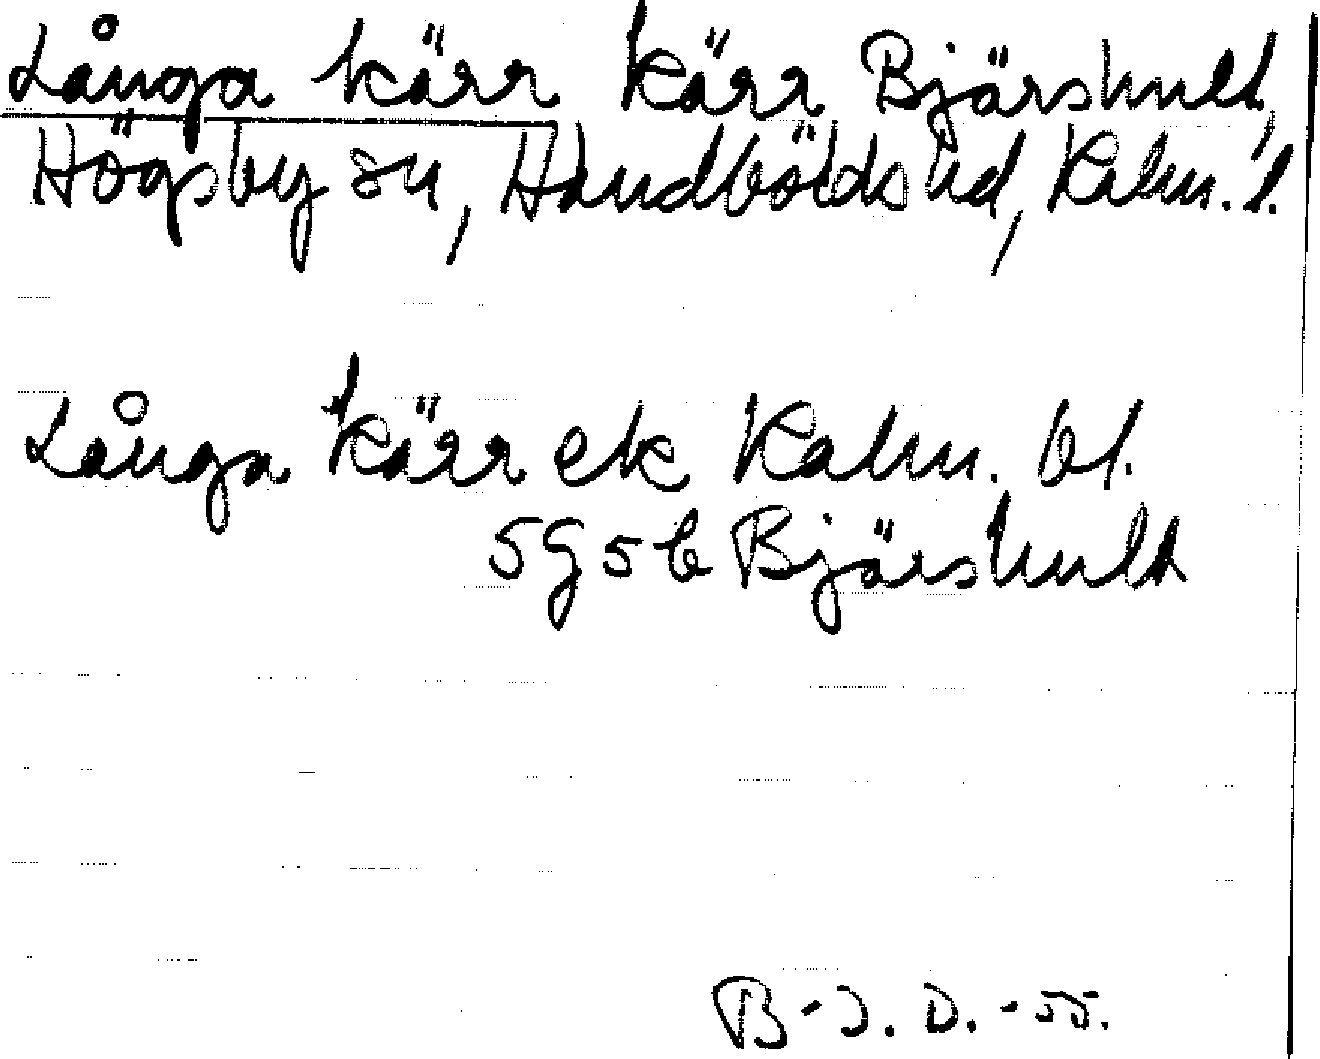 Långa kärr kärr Bjärshult,
Högsby sn, Handbörds hd, Kalm. l.
Långa kärr ek Kalm. bl.
5G5b Bjärshult
B-J. D. -55.